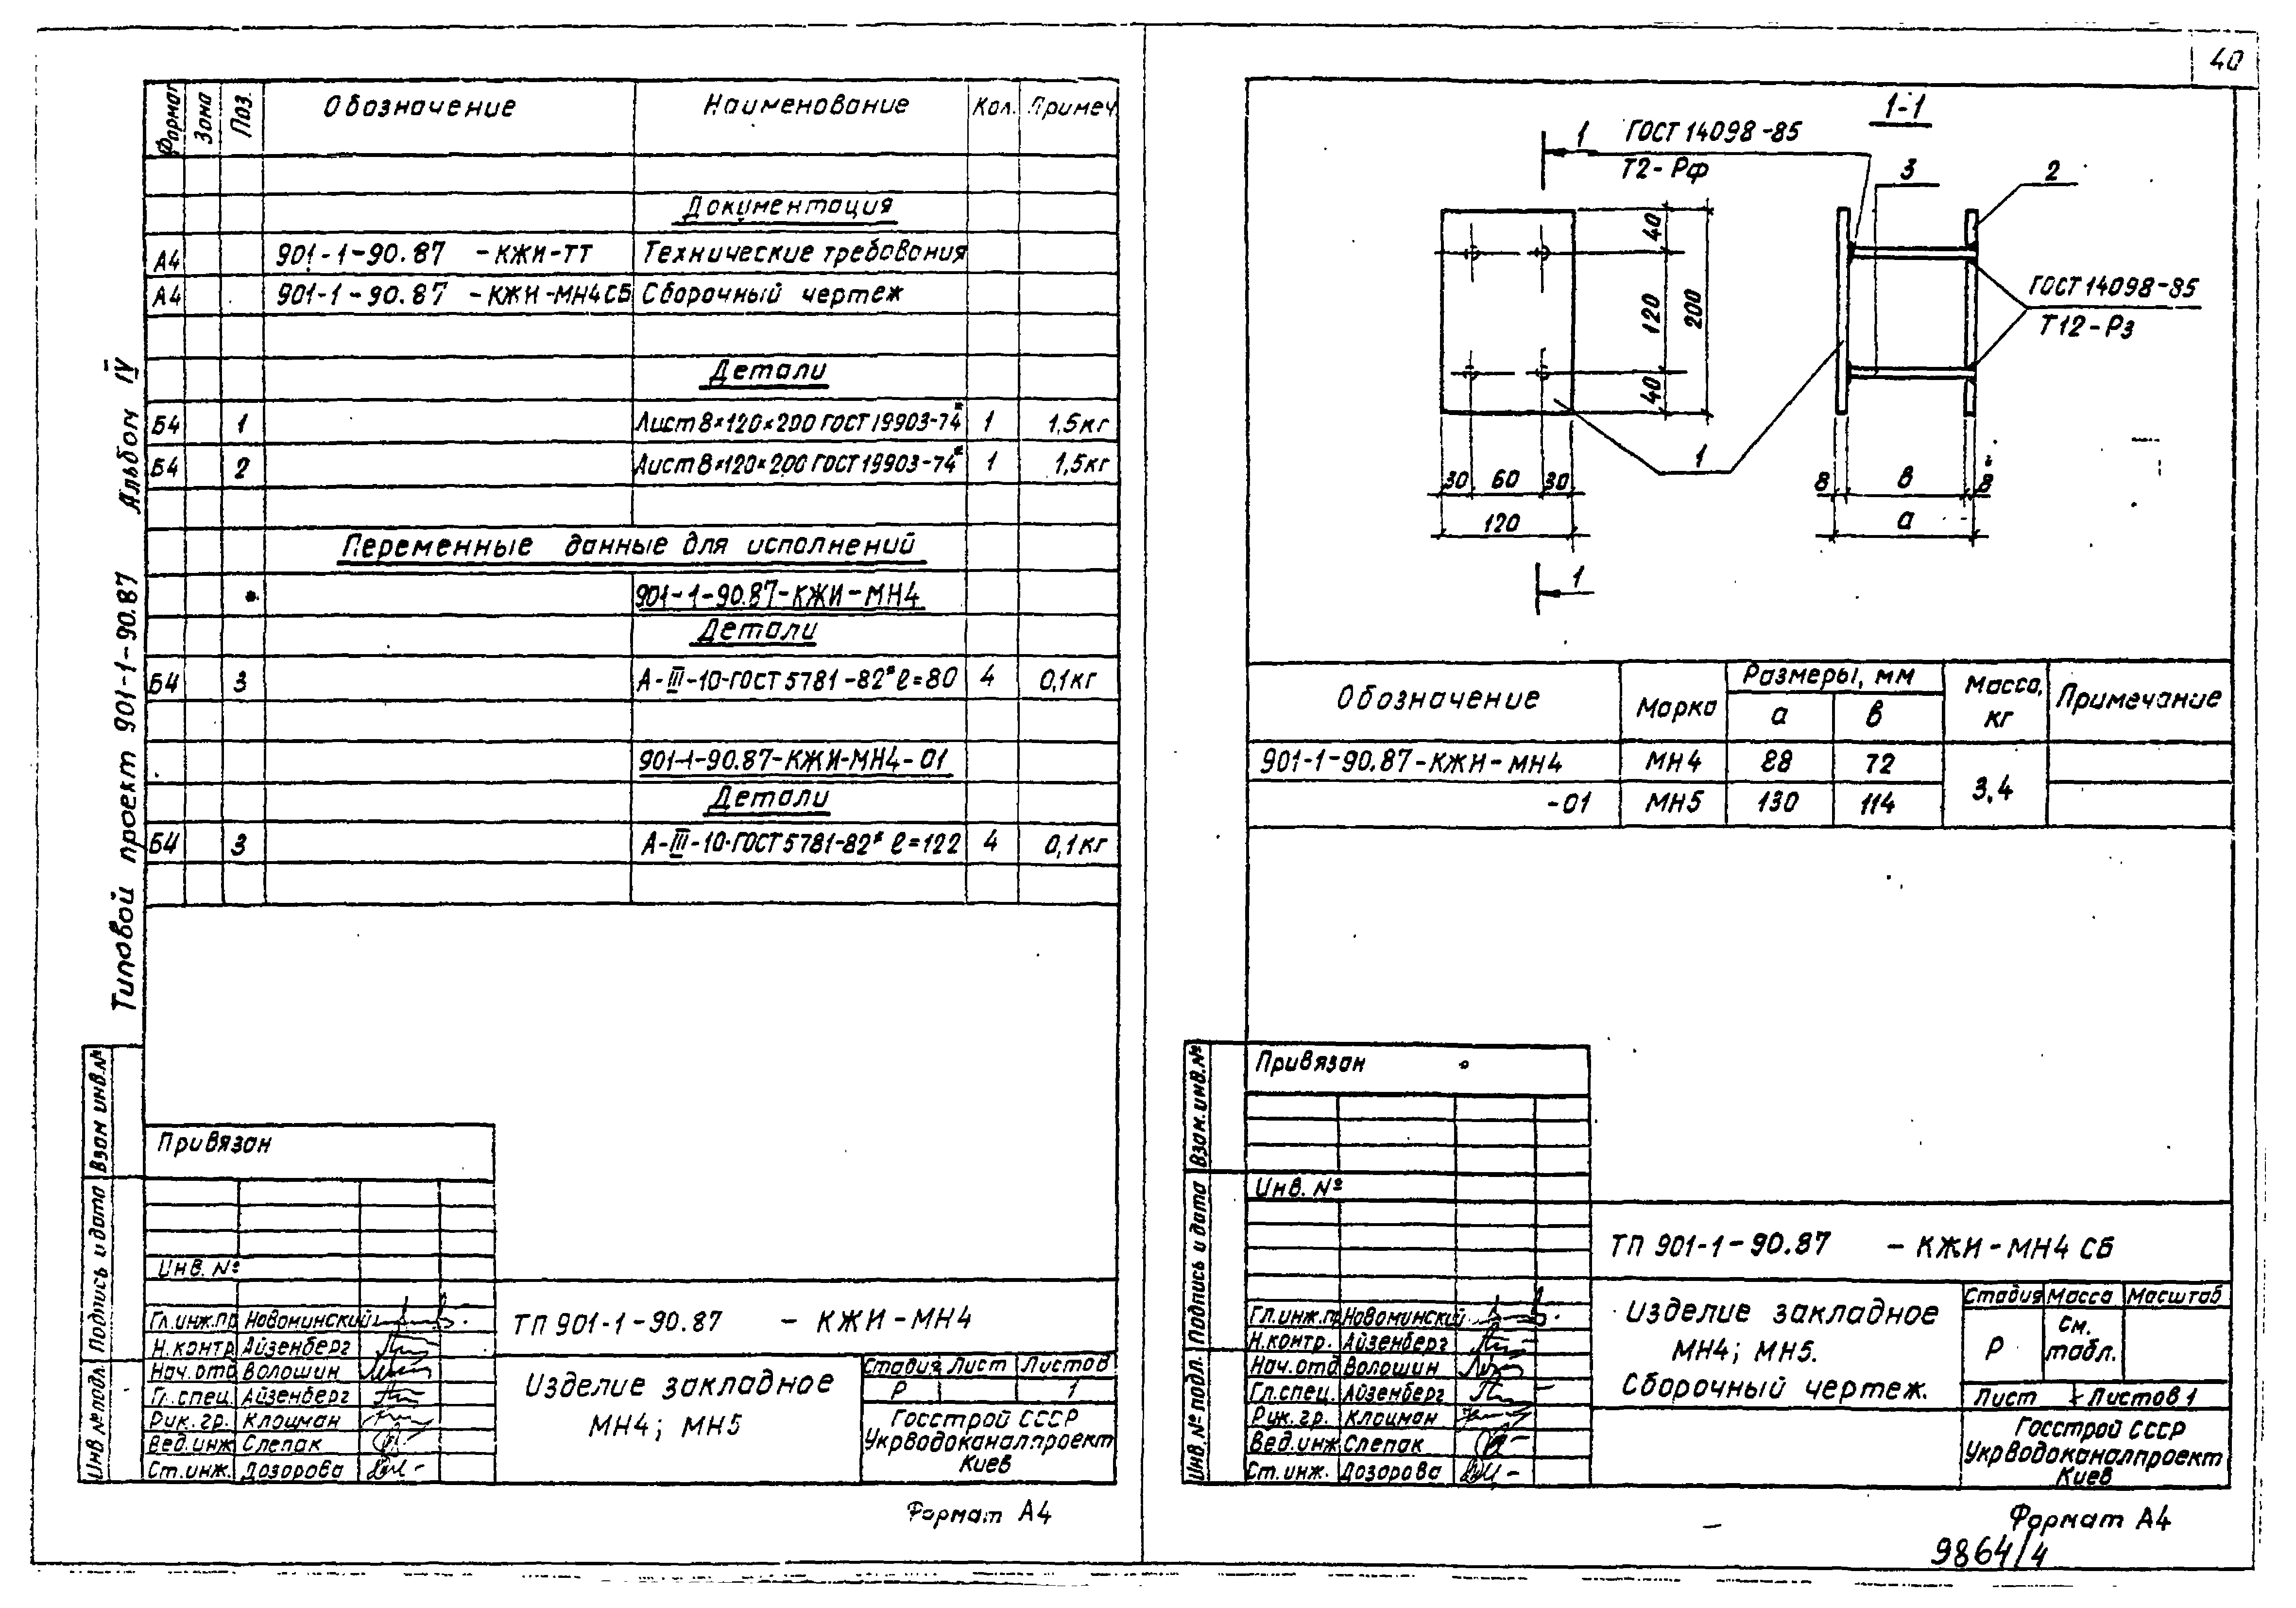 40
Формат Зона Поз. Обозначение Наименование Кол. Примеч.
Документация
А4 901-1-90.87 -КЖИ-ТТ Технические требования
А4 901-1-90.87 -КЖИ-МН4СБ Сборочный чертеж
Детали
Б4 1 Лист 8×120×200 ГОСТ 19903-74* 1 1,5кг
Б4 2 Лист 8×120×200 ГОСТ 19903-74* 1 1,5кг
Переменные данные для исполнений
901-1-90.87-КЖИ-МН4
Детали
Б4 3 А-III-10-ГОСТ 5781-82* ℓ=80 4 0,1кг
901-1-90.87-КЖИ-МН4-01
Детали
Б4 3 А-III-10-ГОСТ 5781-82* ℓ=122 4 0,1кг
Типовой проект 901-1-90.87 Альбом IV
Инв.№ подл. Подпись и дата Взам инв.№
Привязан
Инв. №
Гл.инж.пр Новоминский
Н.контр Айзенберг
Нач.отд Волошин
Гл.спец. Айзенберг
Рук. гр. Клоцман
Вед.инж Слепак
Ст.инж. Дозорова
ТП 901-1-90.87 - КЖИ-МН4
Изделие закладное
МН4; МН5
Стадия Лист Листов
Р 1
Госстрой СССР
Укрводоканалпроект
Киев
Формат А4
1-1
1
ГОСТ 14098-85
Т2-Рф
3
2
40
120
200
40
ГОСТ 14098-85
Т12-Рз
1
30 60 30
120
8 в 8
а
1
Обозначение Марка Размеры, мм Масса, кг Примечание
а в
901-1-90.87-КЖИ-МН4 МН4 88 72 3,4
-01 МН5 130 114
Инв. № подл. Подпись и дата Взам. инв.№
Привязан
Инв. №
Гл.инж.пр Новоминский
Н.контр. Айзенберг
Нач.отд Волошин
Гл.спец. Айзенберг
Рук. гр. Клоцман
Вед.инж Слепак
Ст.инж. Дозорова
ТП 901-1-90.87 - КЖИ-МН4 СБ
Изделие закладное
МН4; МН5.
Сборочный чертеж.
Стадия Масса Масштаб
Р см. табл.
Лист Листов 1
Госстрой СССР
Укрводоканалпроект
Киев
Формат А4
9864/4